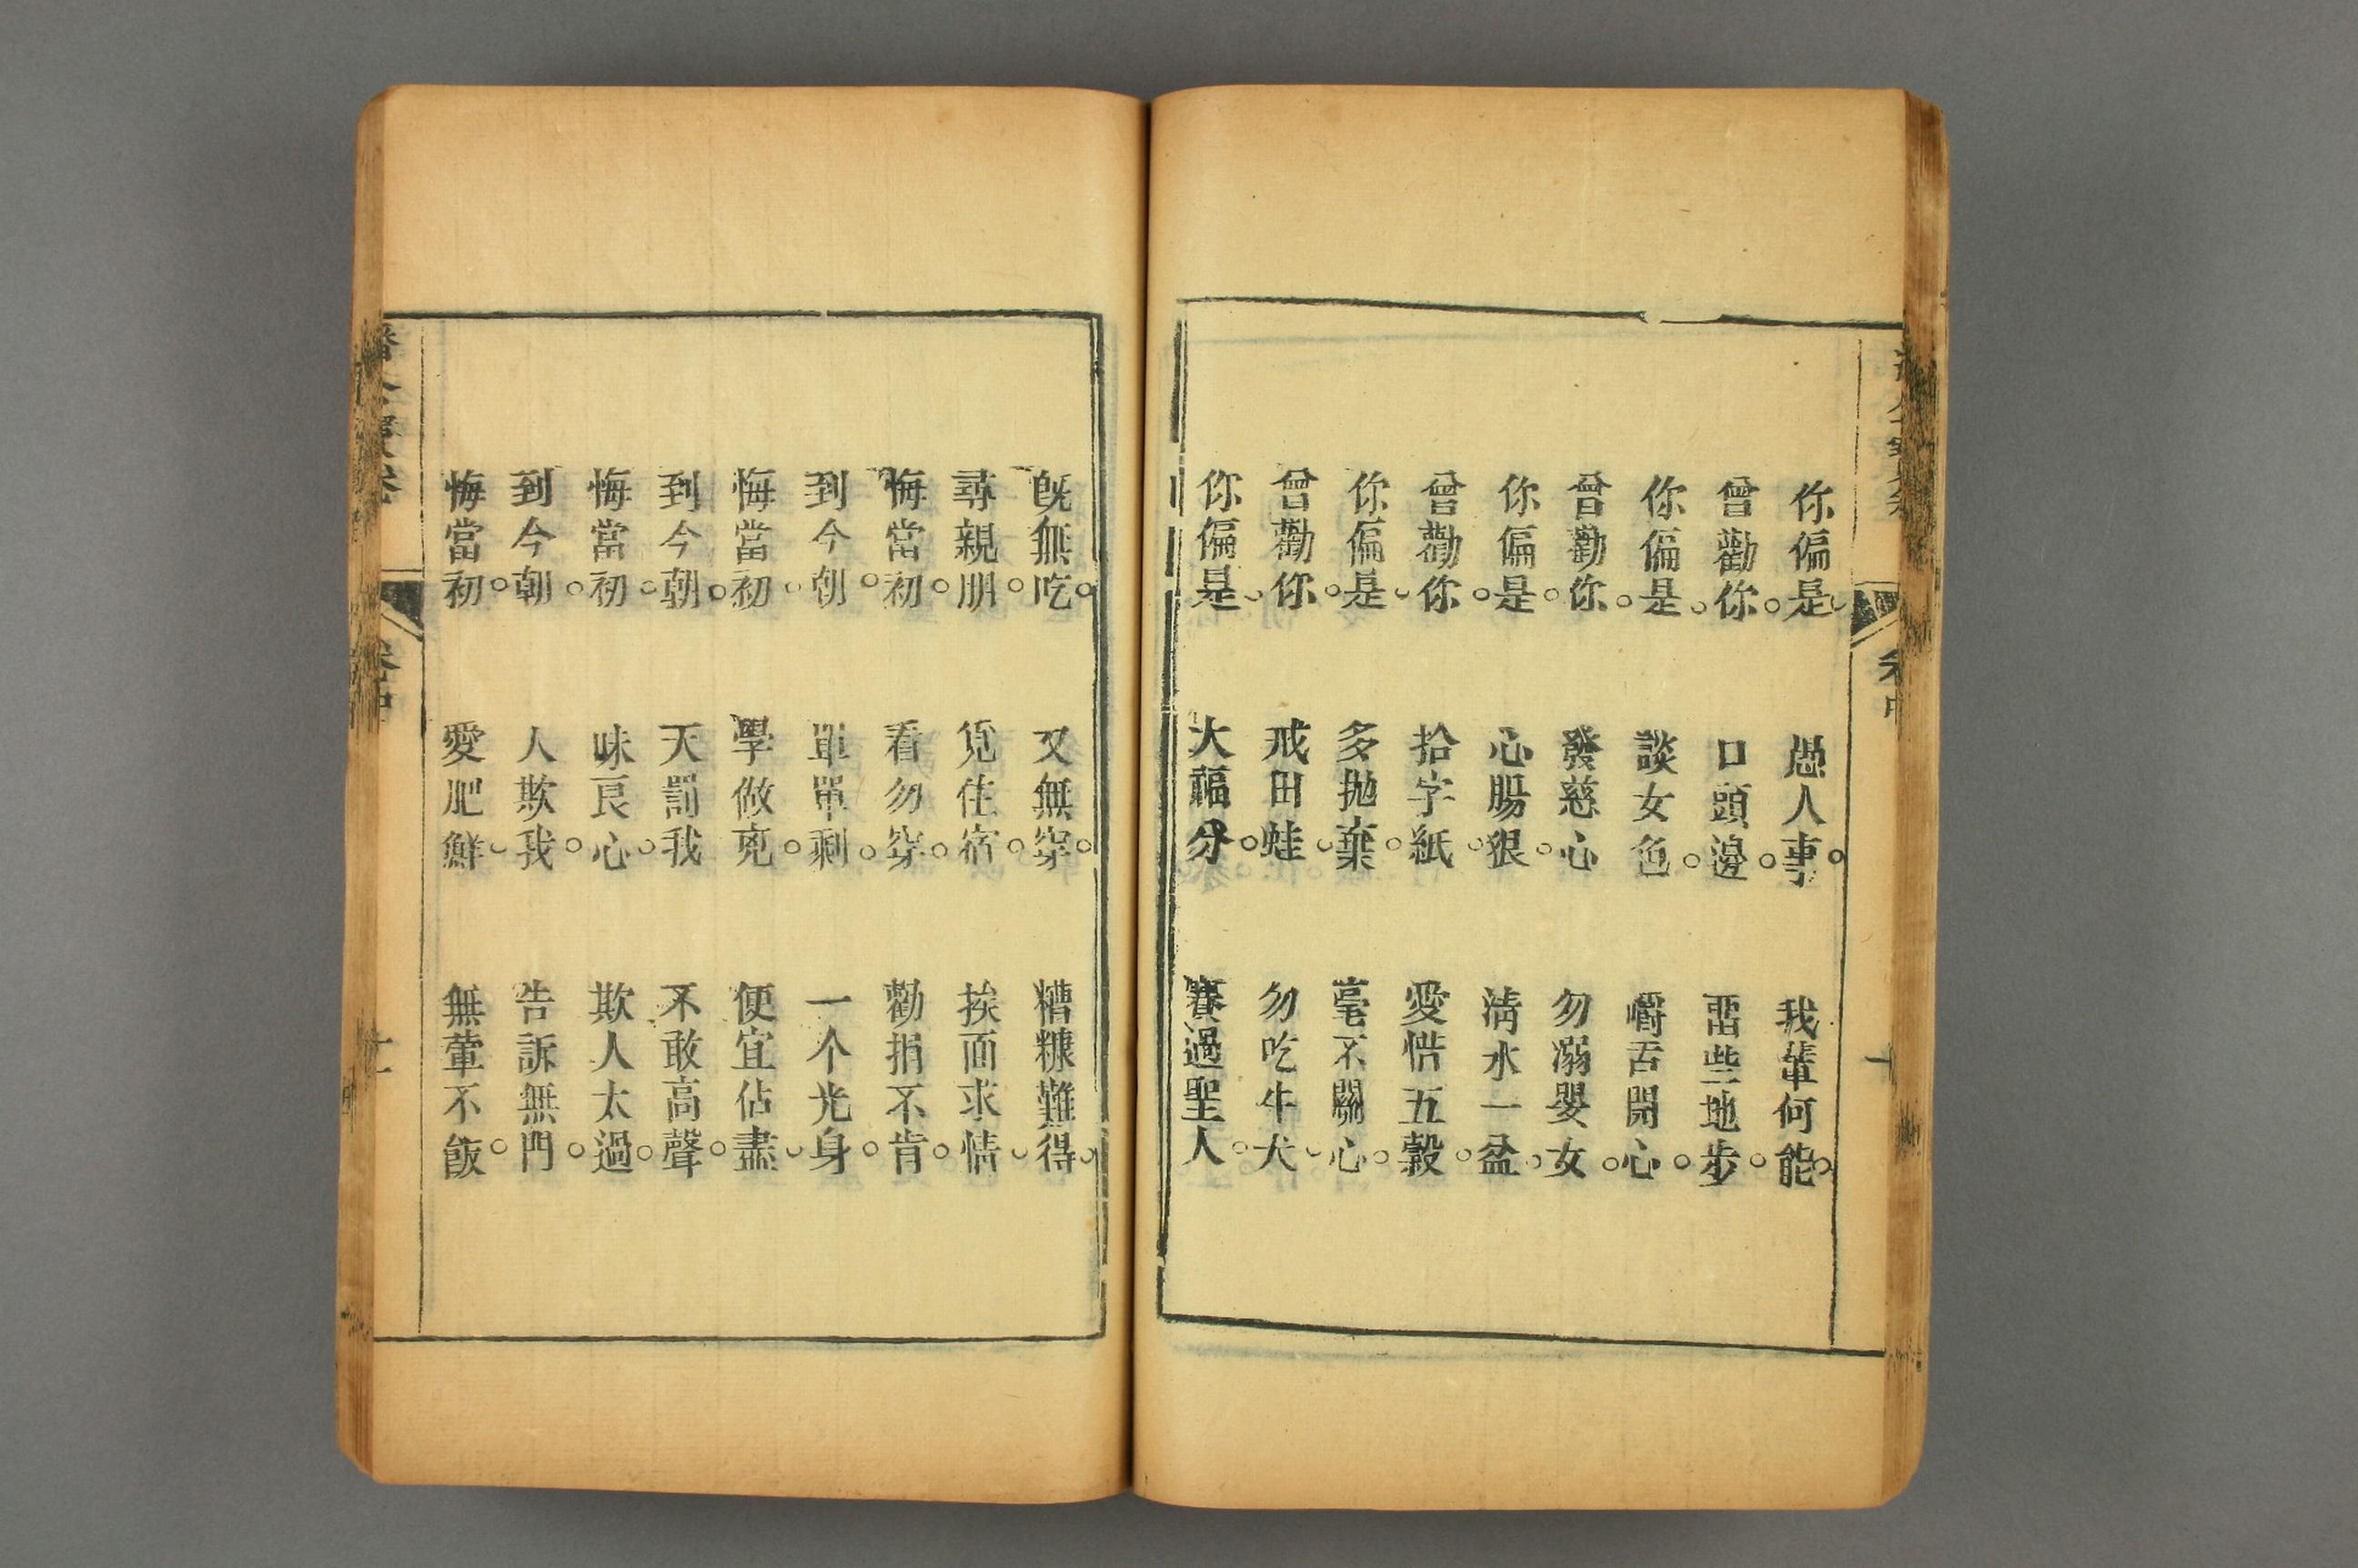 你偏是 愚人事 我輩何能
曾勸你 口頭邊 畱些地步
你偏是 談女色 嚼舌開心
曾勸你 發慈心 勿溺嬰女
你偏是 心腸狠 淸水一盆
曾勸你 拾字紙 愛惜五榖
你偏是 多拋棄 毫不關心
曾勸你 戒田蛙 勿吃牛犬
你偏是 大福分 賽過聖人
旣無吃 又無穿 糟糠難得
尋親朋 覓住宿 挨面求情
悔當初 看勿穿 勸捐不肯
到今朝 單單剩 一个光身
悔當初 學做兇 便宜佔盡
到今朝 天罰我 不敢高聲
悔當初 昧良心 欺人太過
到今朝 人欺我 告訴無門
悔當初 愛肥鮮 無葷不飯